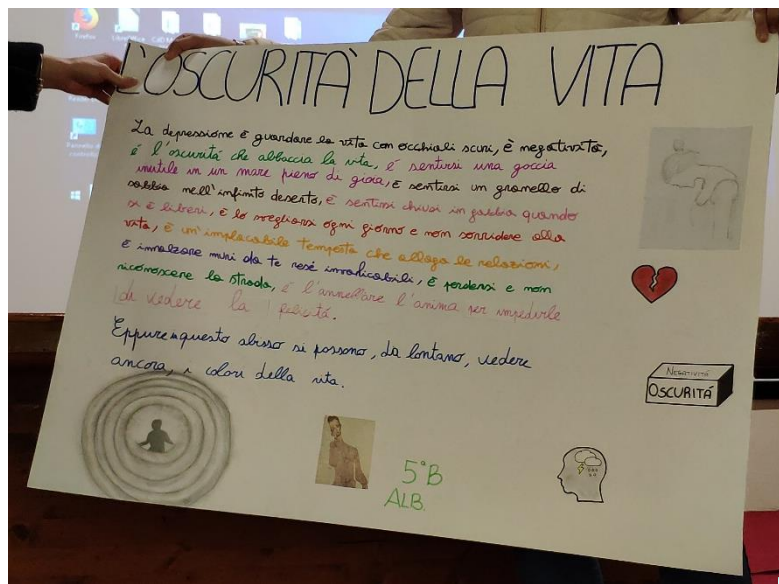 L'OSCURITÀ DELLA VITA
La depressione è guardare la vita con occhiali scuri, è negatività,
è l'oscurità che abbraccia la vita, è sentirsi una goccia
inutile in un mare pieno di gioia, è sentirsi un granello di
sabbia nell'infinito deserto, è sentirsi chiusi in gabbia quando
si è liberi, è lo svegliarsi ogni giorno e non sorridere alla
vita, è un'implacabile tempesta che allaga le relazioni,
è innalzare muri da te resi invalicabili, è perdersi e non
riconoscere la strada, è l'annellare l'anima per impedirle
di vedere la felicità.
Eppure questo abisso si possono, da lontano, vedere
ancora, i colori della vita.
NEGATIVITÀ
OSCURITÁ
5°B
ALB.
Firefox